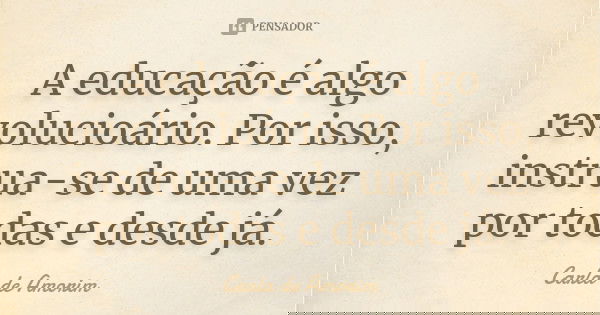 PENSADOR
A educação é algo
revolucioário. Por isso,
instrua-se de uma vez
por todas e desde já.
Carla de Amorim